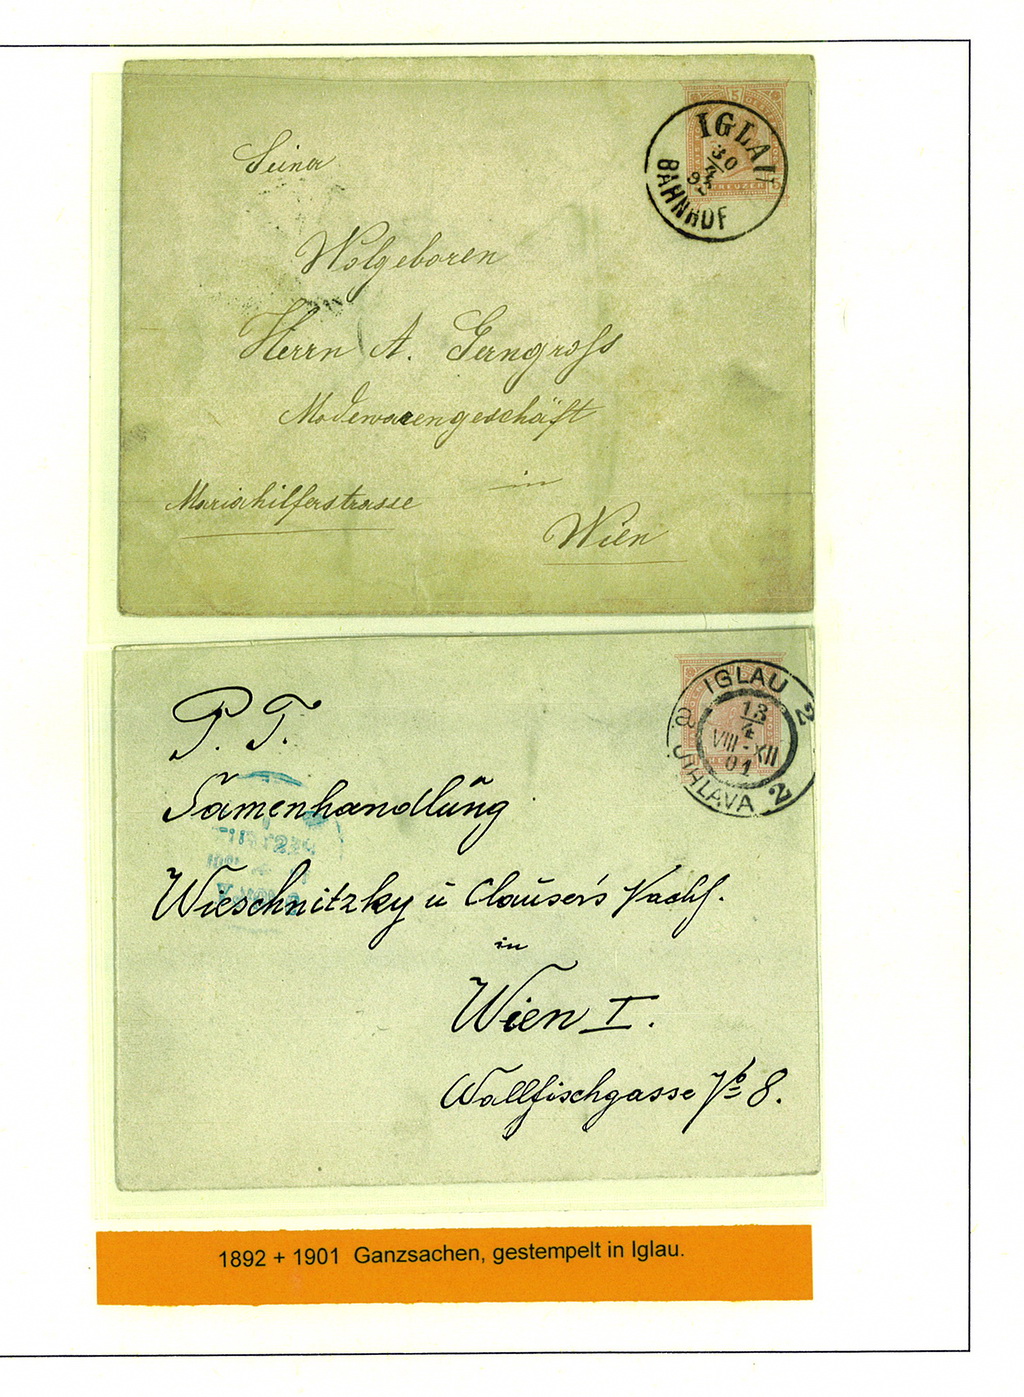 5
KREUZER
5
IGLAU
30
4
92
BAHNHOF
Seiner
Wolgeboren
Herrn A. Gerngross
Modewarengeschäft
in
Mariahilferstrasse
Wien
IGLAU 2
13
4
VIII-XII
01
JIHLAVA 2
P. T.
Samenhandlung
Wieschnitzky u Clauser's Nachf.
in
Wien I.
Wallfischgasse No 8.
1892 + 1901 Ganzsachen, gestempelt in Iglau.